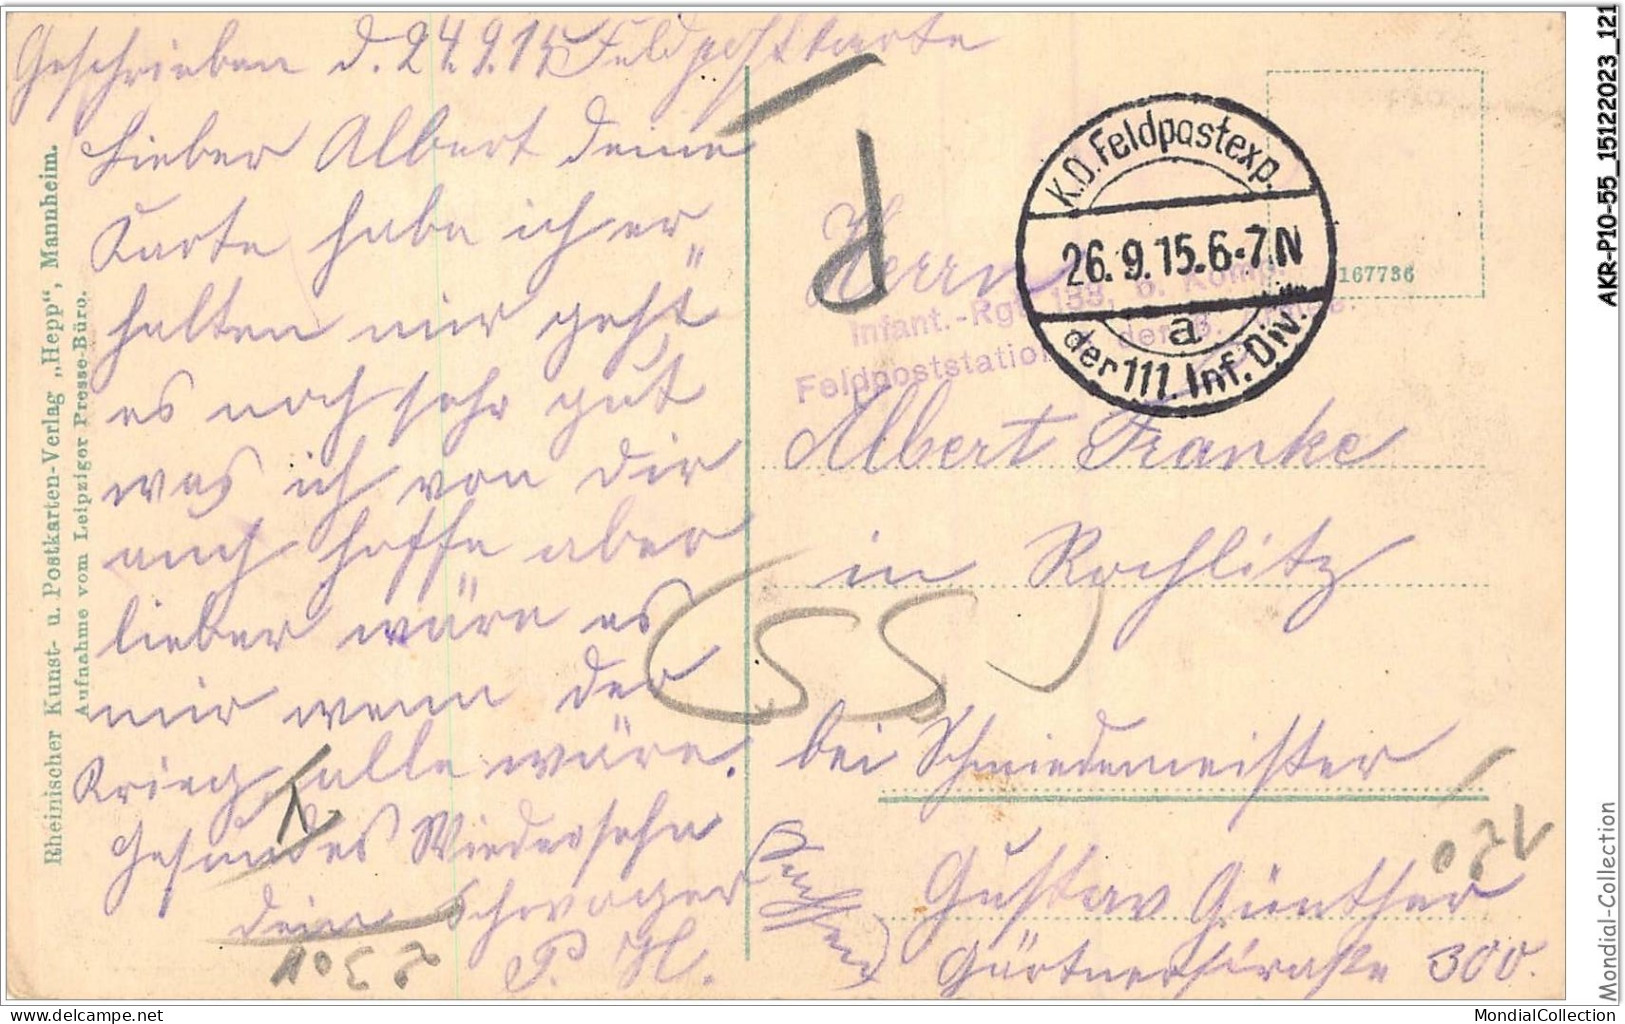 Geschrieben d. 24.9.15 Feldpostkarte
Lieber Albert deine
Karte habe ich er„
halten mir geht
es noch sehr gut
was ich von dir
auch hoffe aber
lieber wäre es
mir wenn der
Krieg alle wäre.
Gesundes Wiedersehn
dein Schwager
P. H.
Rheinischer Kunst- u. Postkarten-Verlag „Hepp“, Mannheim.
Aufnahme vom Leipziger Presse-Büro.
K.D. Feldpostexp.
26.9.15.6-7.N
a
der 111. Inf. Div.
167736
Infant.-Rgt. 133, 6. Komp.
Feldpoststation der
Herrn
Albert Franke
in Rochlitz
bei Schmiedemeister
Gustav Günther
Gärtnerstraße 300.
(Sachsen)
55
AKR-P10-55_15122023_121
Mondial-Collection
www.delcampe.net
MondialCollection